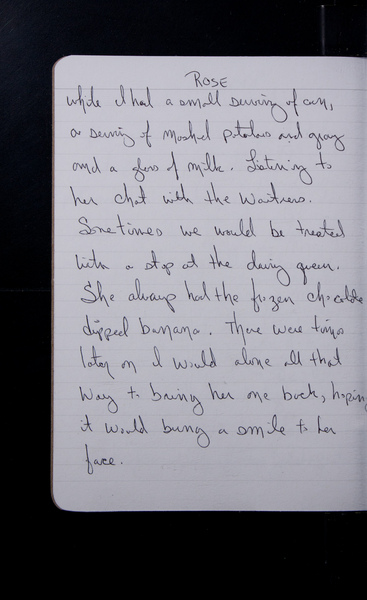 ROSE
while I had a small serving of corn,
a serving of mashed potatoes and gravy
and a glass of milk. Listening to
her chat with the waitress.
Sometimes we would be treated
with a stop at the dairy queen.
She always had the frozen chocolate
dipped banana. There were times
later on I would drive all that
way to bring her one back, hoping
it would bring a smile to her
face.